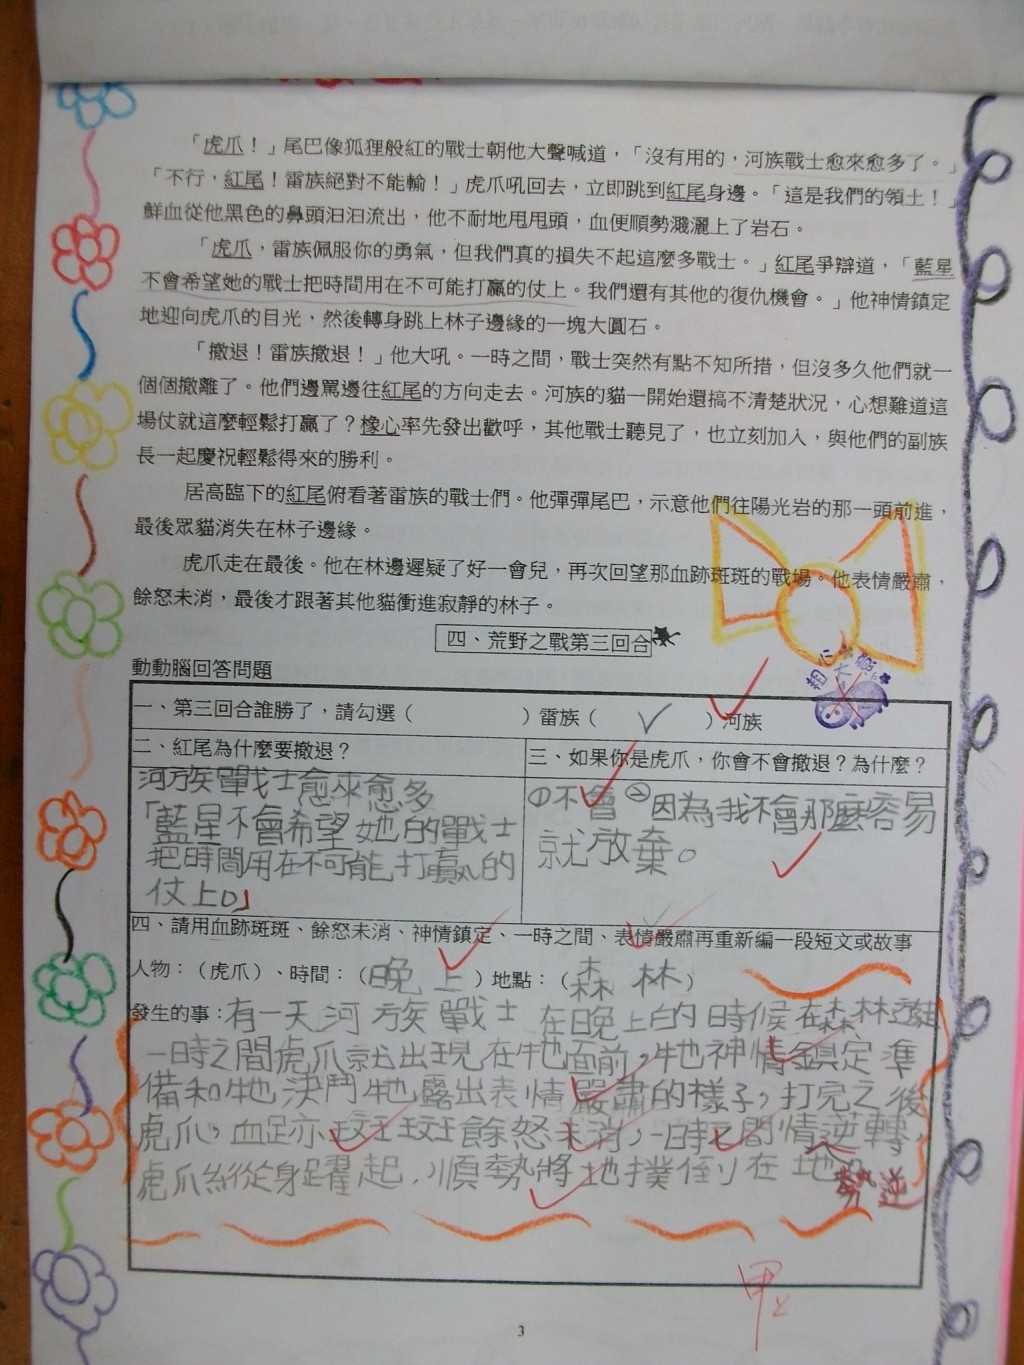 「虎爪！」尾巴像狐狸般紅的戰士朝他大聲喊道，「沒有用的，河族戰士愈來愈多了。」
「不行，紅尾！雷族絕對不能輸！」虎爪吼回去，立即跳到紅尾身邊。「這是我們的領土！」
鮮血從他黑色的鼻頭汩汩流出，他不耐地甩甩頭，血便順勢濺灑上了岩石。
「虎爪，雷族佩服你的勇氣，但我們真的損失不起這麼多戰士。」紅尾爭辯道，「藍星
不會希望她的戰士把時間用在不可能打贏的仗上。我們還有其他的復仇機會。」他神情鎮定
地迎向虎爪的目光，然後轉身跳上林子邊緣的一塊大圓石。
「撤退！雷族撤退！」他大吼。一時之間，戰士突然有點不知所措，但沒多久他們就一
個個撤離了。他們邊罵邊往紅尾的方向走去。河族的貓一開始還搞不清楚狀況，心想難道這
場仗就這麼輕鬆打贏了？橡心率先發出歡呼，其他戰士聽見了，也立刻加入，與他們的副族
長一起慶祝輕鬆得來的勝利。
居高臨下的紅尾俯看著雷族的戰士們。他彈彈尾巴，示意他們往陽光岩的那一頭前進，
最後眾貓消失在林子邊緣。
虎爪走在最後。他在林邊遲疑了好一會兒，再次回望那血跡斑斑的戰場。他表情嚴肅，
餘怒未消，最後才跟著其他貓衝進寂靜的林子。
四、荒野之戰第三回合
粗心大意
動動腦回答問題
一、第三回合誰勝了，請勾選（ ）雷族（ ✓ ）河族
二、紅尾為什麼要撤退？
河族戰士愈來愈多
「藍星不會希望她的戰士
把時間用在不可能打贏的
仗上。」
三、如果你是虎爪，你會不會撤退？為什麼？
①不會②因為我不會那麼容易
就放棄。
四、請用血跡斑斑、餘怒未消、神情鎮定、一時之間、表情嚴肅再重新編一段短文或故事
人物：（虎爪）、時間：（晚上）地點：（森林）
發生的事：有一天河族戰士在晚上的時候在森林遊
一時之間虎爪就出現在牠面前，牠神情鎮定準
備和牠決鬥牠露出表情嚴肅的樣子，打完之後
虎爪，血跡斑斑餘怒未消，一時之間情逆轉，
虎爪縱身躍起，順勢將牠撲倒在地
勢逆
甲上
3